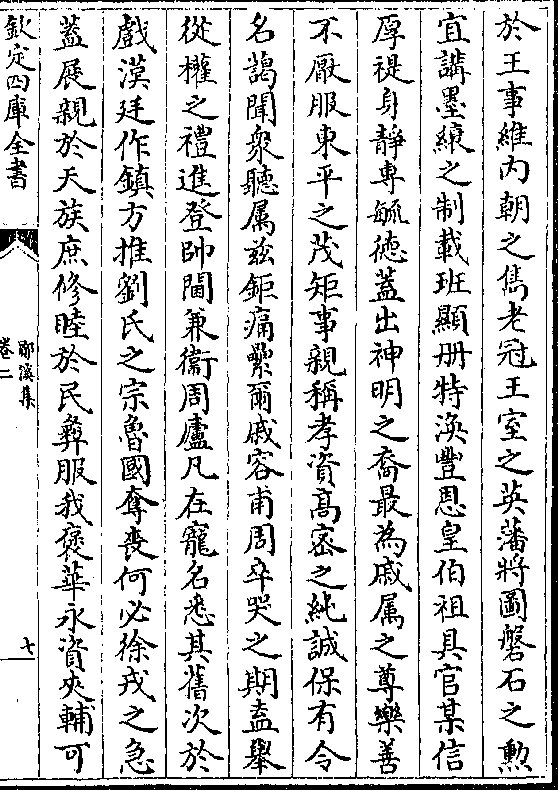 於王事維內朝之雋老冠王室之英藩將圖磐石之勲
宜講墨縗之制載班顯册特渙豐恩皇伯祖具官某信
厚禔身靜專毓徳蓋出神明之裔最為戚属之尊樂善
不厭服東平之茂矩事親稱孝資髙宻之純誠保有令
名藹聞衆聽属兹鉅痛纍爾戚容甫周卒哭之期盍舉
從權之禮進登帥閫兼衛周廬凡在寵名悉其舊次於
戲漢廷作鎮方推劉氏之宗魯國奪喪何必徐戎之急
蓋展親於天族庶修睦於民彝服我褒華永資夾輔可
欽定四庫全書
鄖溪集
卷二
七